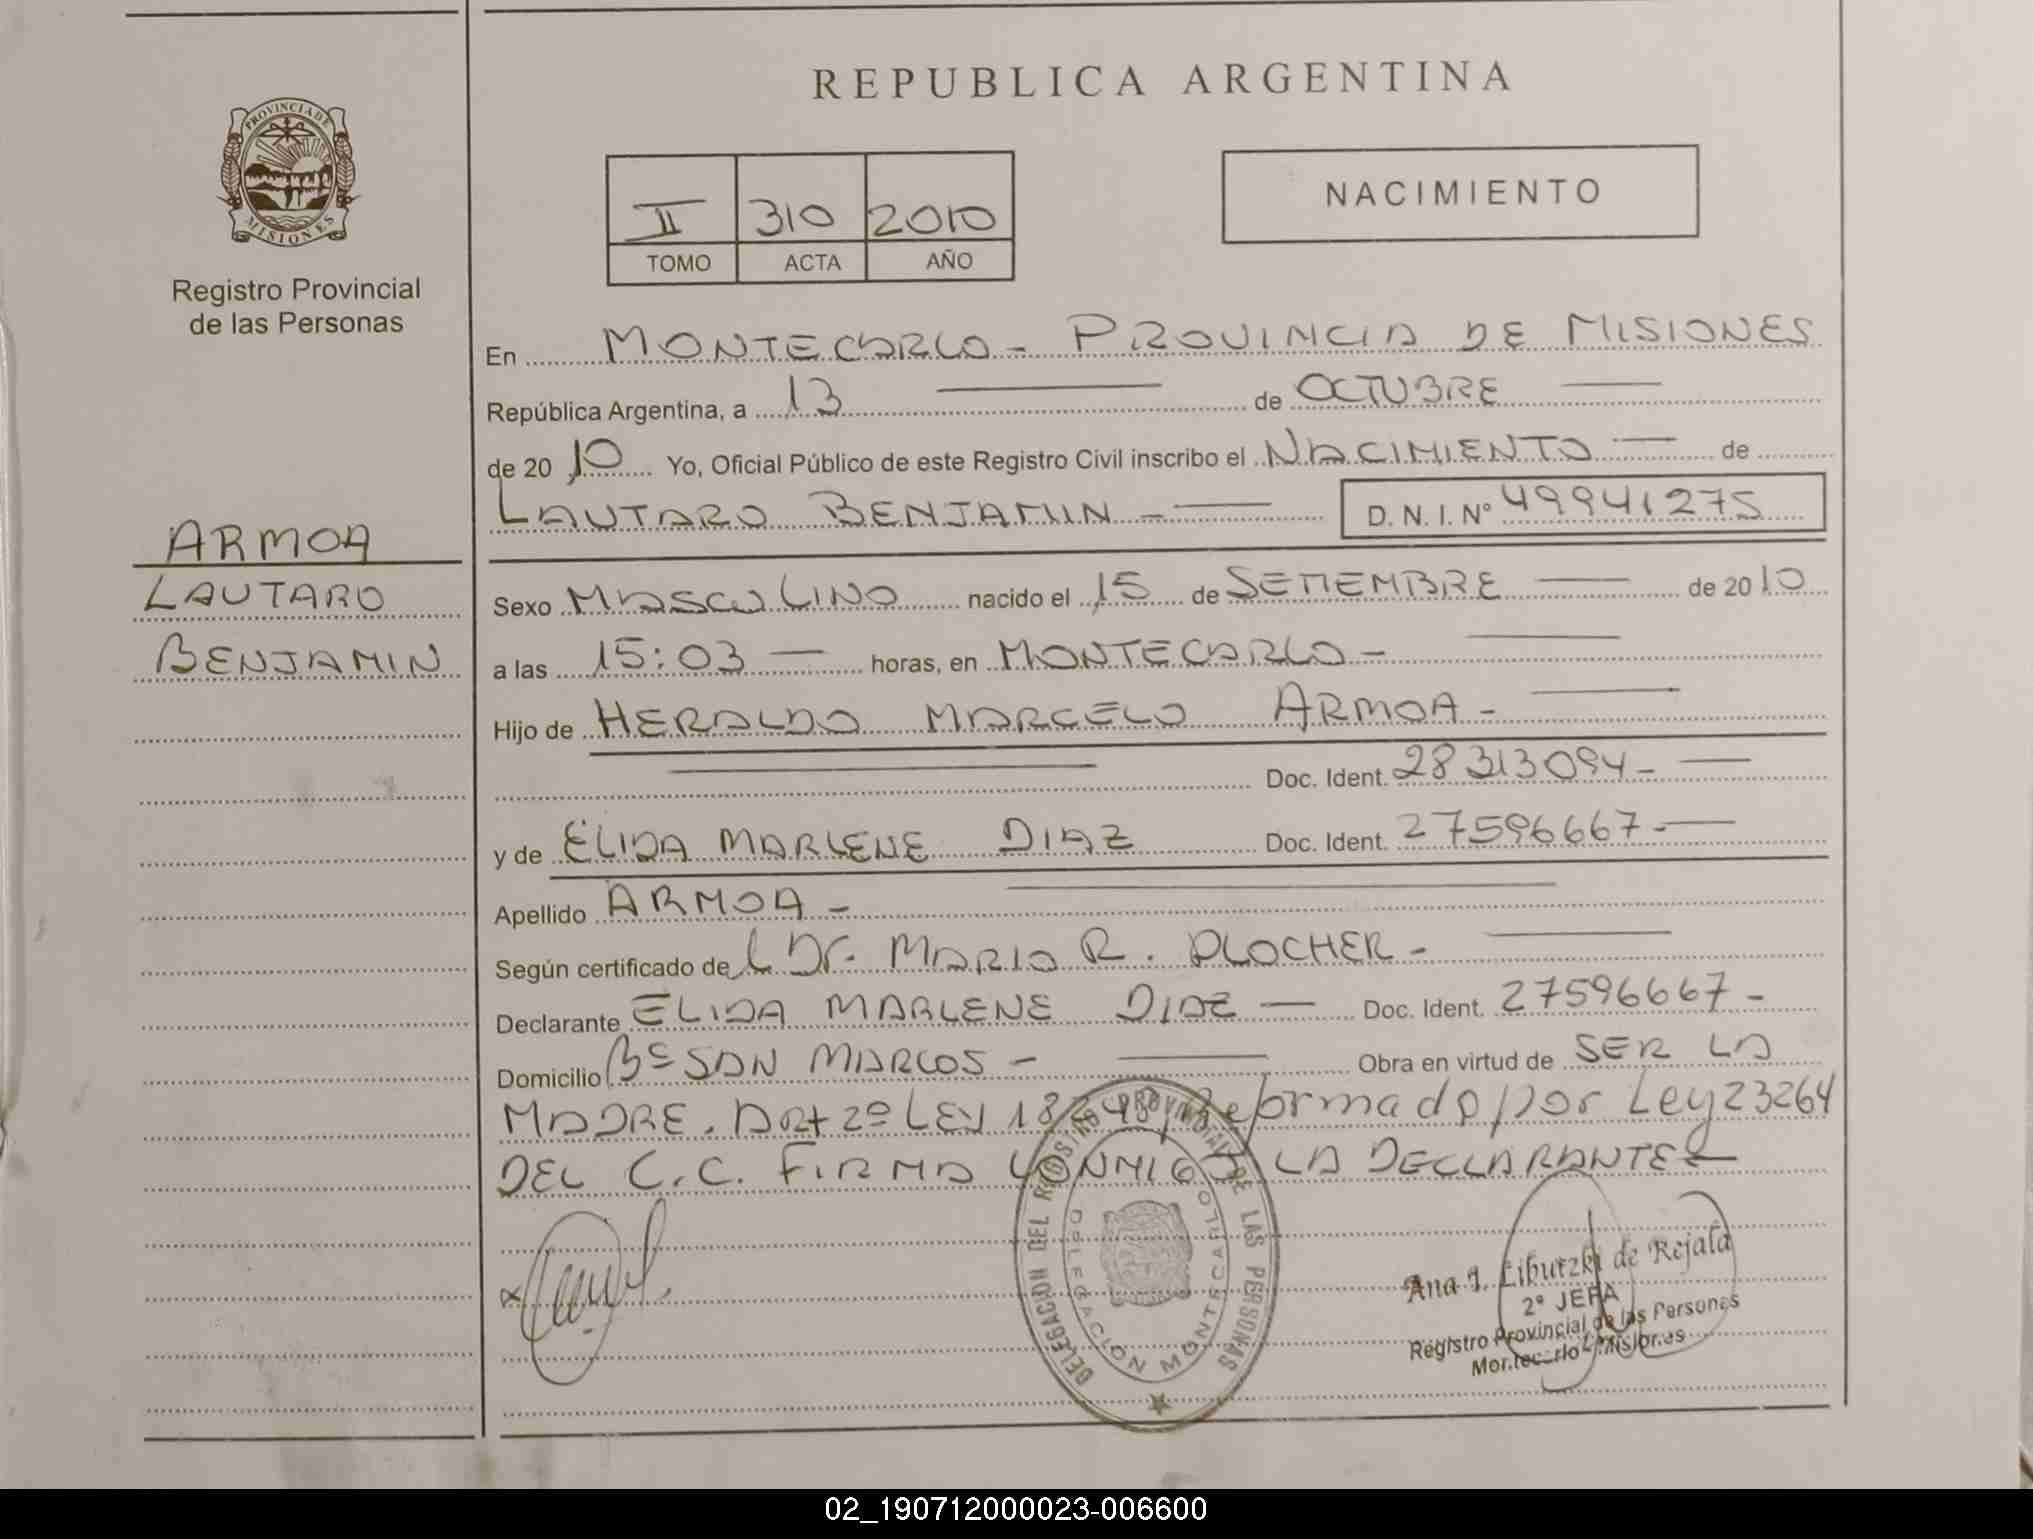 REPUBLICA ARGENTINA
PROVINCIA DE
MISIONES
Registro Provincial
de las Personas
II 310 2010
TOMO ACTA AÑO
NACIMIENTO
En MONTECARLO - PROVINCIA DE MISIONES
República Argentina, a 13 de OCTUBRE
de 20 10 Yo, Oficial Público de este Registro Civil inscribo el NACIMIENTO de
LAUTARO BENJAMIN - D. N. I. Nº 49941275
ARMOA
LAUTARO
BENJAMIN
Sexo MASCULINO nacido el 15 de SETIEMBRE de 2010
a las 15:03 horas, en MONTECARLO -
Hijo de HERALDO MARCELO ARMOA -
Doc. Ident. 28313094-
y de ELIDA MARLENE DIAZ Doc. Ident. 27596667-
Apellido ARMOA -
Según certificado de L Dr. MARIO R. PLOCHER -
Declarante ELIDA MARLENE DIAZ Doc. Ident. 27596667 -
Domicilio Bº SAN MARCOS - Obra en virtud de SER LA
MADRE. ART 2º LEY 18248, Reformado por Ley 23264
DEL C.C. FIRMA CONMIGO LA DECLARANTE
DELEGACION DEL REGISTRO PROVINCIAL DE LAS PERSONAS
DELEGACIÓN MONTECARLO
Ana I. Libutzki de Rejala
2º JEFA
Registro Provincial de las Personas
Montecarlo - Misiones
02_190712000023-006600